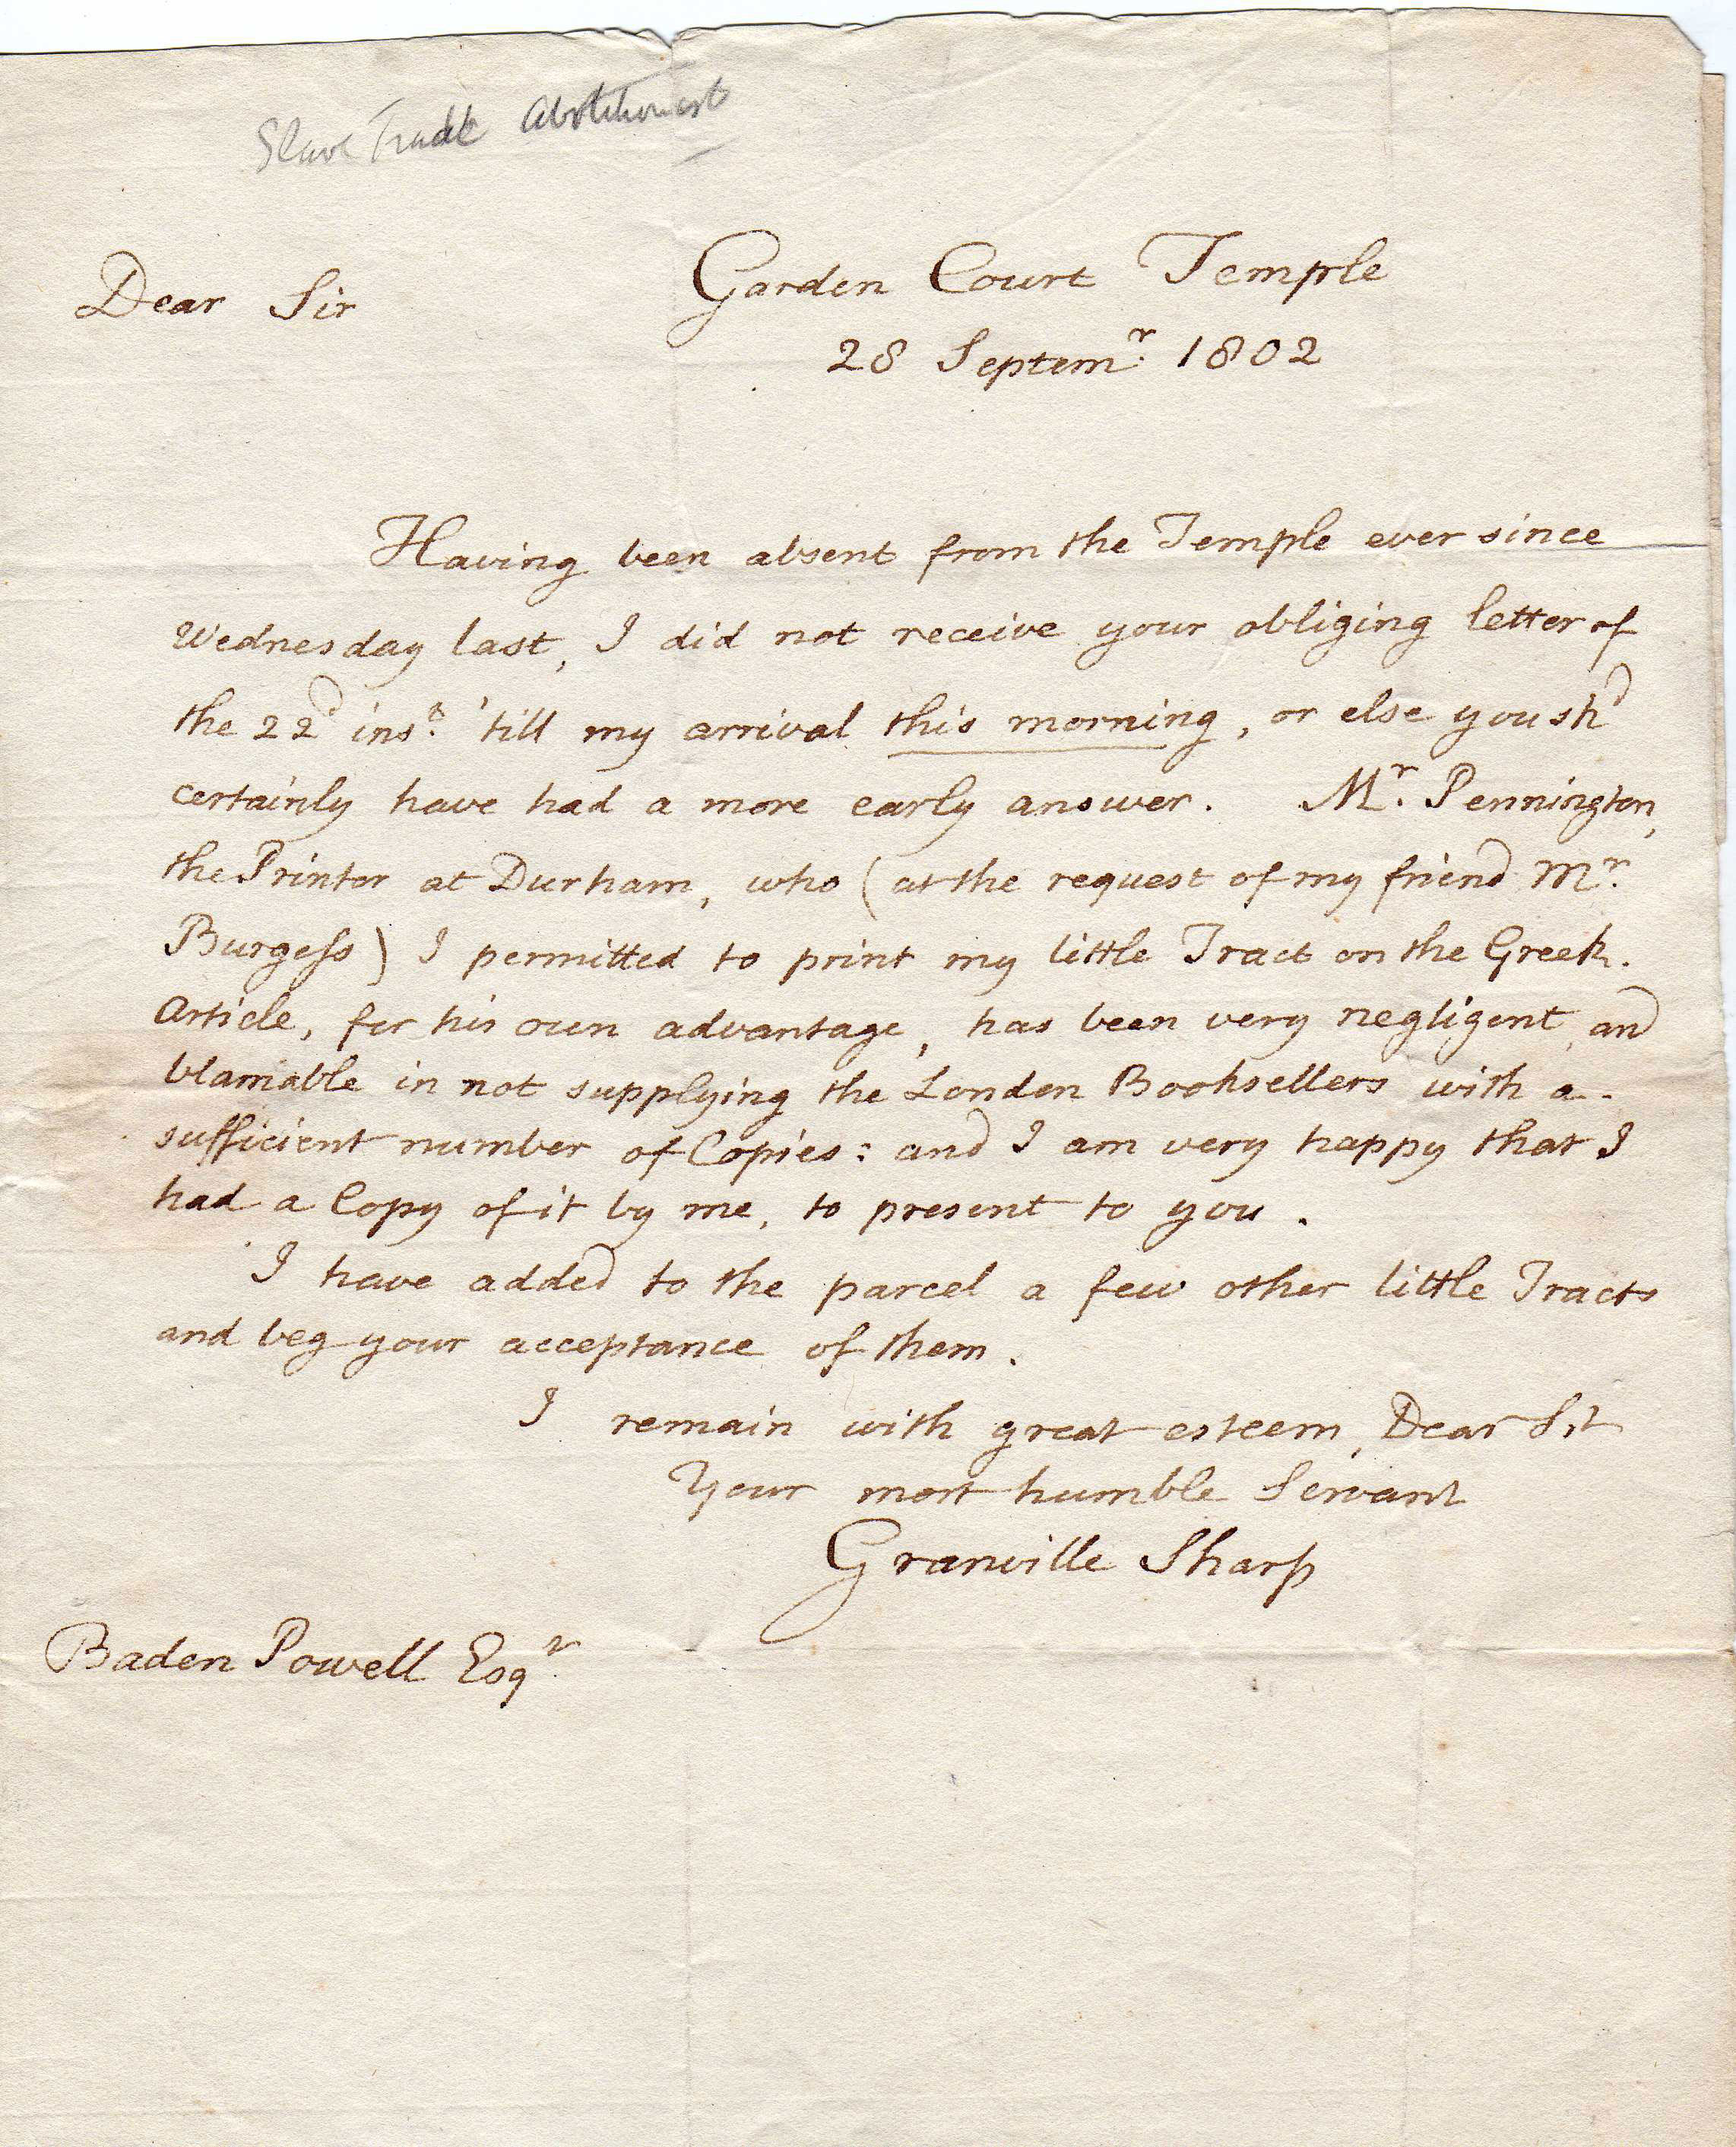 Slave Trade Abolitionist
Garden Court Temple
Dear Sir
28 Septemr. 1802
Having been absent from the Temple ever since
Wednesday last, I did not receive your obliging letter of
the 22d inst. 'till my arrival this morning, or else you shd
certainly have had a more early answer. Mr. Pennington,
the Printer at Durham, who (at the request of my friend Mr.
Burgess) I permitted to print my little Tract on the Greek.
Article, for his own advantage, has been very negligent and
blamable in not supplying the London Booksellers with a
sufficient number of Copies: and I am very happy that I
had a Copy of it by me, to present to you.
I have added to the parcel a few other little Tracts
and beg your acceptance of them.
I remain with great esteem, Dear Sir
Your most humble Servant
Granville Sharp
Baden Powell Esqr.